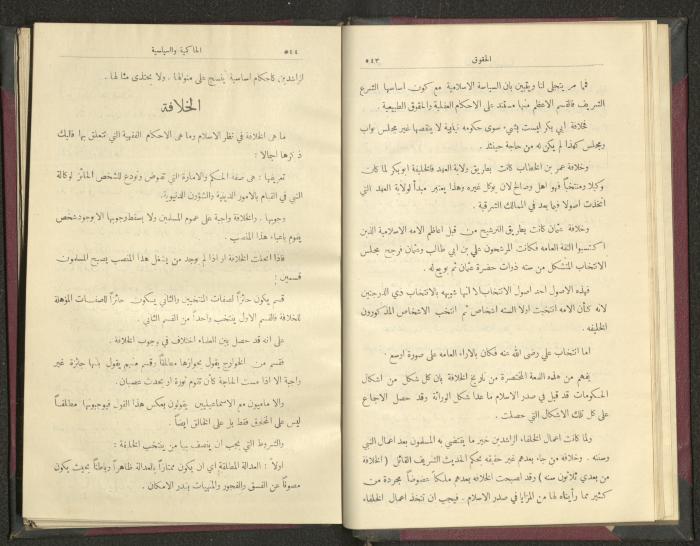 الحقوق ٥٤٣
فما مر يتجلى لنا ويتبين بان السياسة الاسلامية مع كون اساسها الشرع
الشريف فالقسم الاعظم منها مستند على الاحكام العقلية والحقوق الطبيعية .
فخلافة ابي بكر ليست بشيء سوى حكومه نيابية لا ينقصها غير مجلس نواب
ومجلس كهذا لم يكن له من حاجة حينئذ .
وخلافة عمر بن الخطاب كانت بطريق ولاية العهد فالخليفة ابو بكر لما كان
وكيلا ومنتخباً فهو اهل وصالح لان يوكل غيره وهذا يعتبر مبدأ لولاية العهد التي
اتخذت اصولا فيما بعد في الممالك الشرقية .
وخلافة عثمان كانت بطريق الترشيح من قبل اعاظم الامه الاسلامية الذين
اكتسبوا الثقة العامه فكانت المرشحون علي بن ابي طالب وعثمان فرجح مجلس
الانتخاب المتشكل من سته ذوات حضرة عثمان ثم بويع له .
فهذه الاصول احد اصول الانتخاب لا انها شبيهه بالانتخاب ذي الدرجتين
لانه كأن الامه انتخبت اولا الستة اشخاص ثم انتخب الاشخاص المذكورون
الخليفه .
اما انتخاب علي رضى الله عنه فكان بالاراء العامه على صورة اوسع .
يفهم من هذه اللمعة المختصرة من تاريخ الخلافة بان كل شكل من اشكال
الحكومات قد قبل في صدر الاسلام ما عدا شكل الوراثة وقد حصل الاجماع
على كل تلك الاشكال التي حصلت .
ولما كانت اعمال الخلفاء الراشدين خير ما يقتضي به المسلمون بعد اعمال النبي
وسننه . وخلافه من جاء بعدهم غير حقيقه بحكم الحديث الشريف القائل ( الخلافة
من بعدي ثلاثون سنه ) وقد اصبحت الخلافه بعدهم ملكاً عضوضاً مجردة من
كثير مما رأيناه لها من المزايا في صدر الاسلام . فيجب ان تتخذ اعمال الخلفاء
٥٤٤ الحاكمية والسياسية
الراشدين كأحكام اساسية ينسج على منوالها . ولا يحتذى مثالها .
الخلافة
ما هي الخلافة في نظر الاسلام وما هي الاحكام الفقهية التي تتعلق بها فاليك
ذكرها اجمالا :
تعريفها : هي صفة الحكم والامارة التي تفوض وتودع للشخص الحائز لوكالة
النبي في القيام بالامور الدينية والشؤون الدنيوية .
وجوبها . والخلافة واجبة على عموم المسلمين ولا يسقط وجوبها الا بوجود شخص
يقوم باعباء هذا المنصب .
فاذا انحلت الخلافة او اذا لم يوجد من يشغل هذا المنصب يصبح المسلمون
قسمين :
قسم يكون حائزاً لصفات المنتخبين والثاني يكون حائزاً للصفات المؤهلة
للخلافة فالقسم الاول ينتخب واحداً من القسم الثاني .
على انه قد حصل بين العلماء اختلاف في وجوب الخلافة .
فقسم من الخوارج يقول بجوازها مطلقاً وقسم منهم يقول بانها جائزة غير
واجبة الا اذا مست الحاجة كأن تقوم ثورة او يحدث عصيان .
والاماميون مع الاسماعيليين يقولون بعكس هذا القول فيوجبونها مطلقاً
ليس على المخلوق فقط بل على الخالق ايضاً .
والشروط التي يجب ان يتصف بها من ينتخب الخليفة :
اولاً : العدالة المطلقة اي ان يكون ممتازاً بالعدالة ظاهراً وباطناً بحيث يكون
مصوناً عن الفسق والفجور والمنهيات بقدر الامكان .